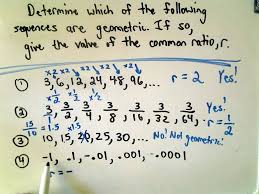 Determine which of the following
sequences are geometric. If so,
give the value of the common ratio, r.
x2 x2 x2 x2 x2
① 3, 6, 12, 24, 48, 96, ... r = 2 Yes!
② 3/2, 3/4, 3/8, 3/16, 3/32, 3/64, r = 1/2 Yes!
15/10 = 1.5 x1.5
③ 10, 15, 20, 25, 30, ... No! Not geometric!
④ -1, .1, -.01, .001, -.0001
r = -